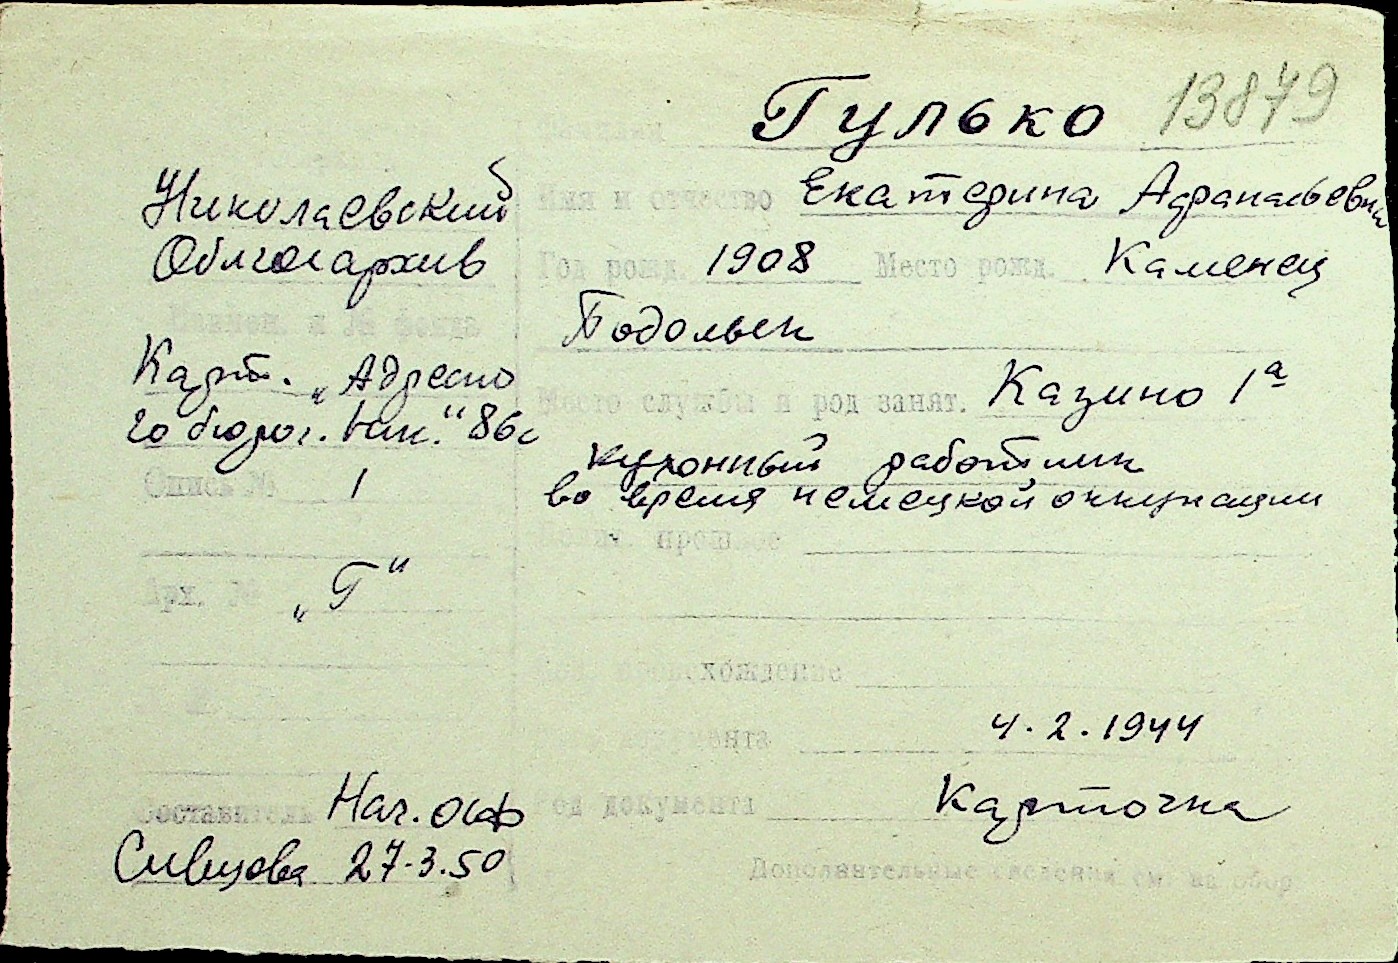 Гулько 13879
Фамилия
Николаевский
Облгосархив
Имя и отчество Екатерина
Год рожд. 1908 Место рожд. Каменец
Подольск
Наимен. и № фонда
Карт. „Адресно
го бюро г. Ник." 86с
Место службы и род занят. Казино 1а
кухонный работник
во время немецкой оккупации
Опись № 1
Полит. прошлое
Арх. № „Г"
Соц. происхождение
документа 4.2.1944
Составитель Нач.
Год документа Карточка
Сивцова 27-3.50
Дополнительные сведения см. на обор